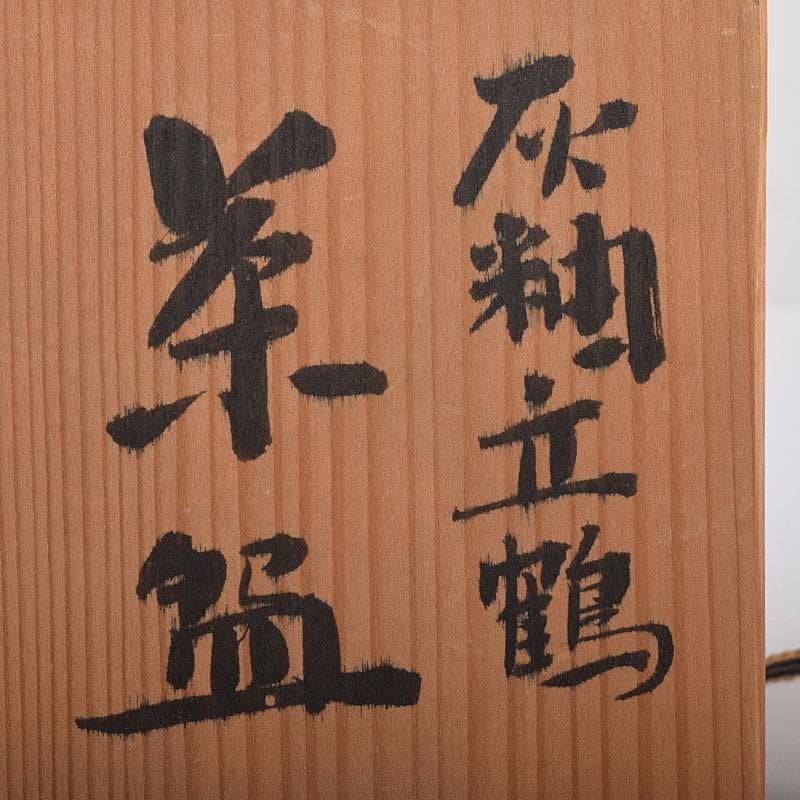 灰釉立鶴
茶盌